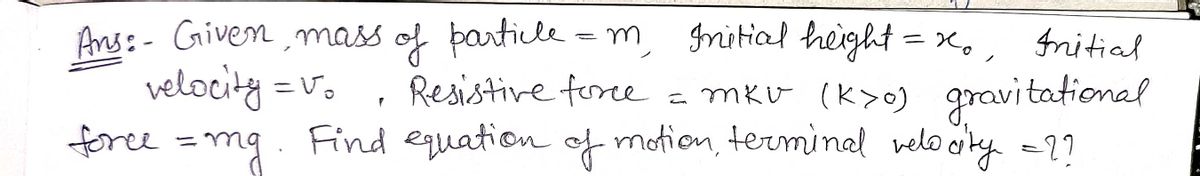 Ans:- Given, mass of particle = m, Initial height = x₀, Initial
velocity = v₀, Resistive force = mkv (k>0) gravitational
force = mg. Find equation of motion, terminal velocity = ??